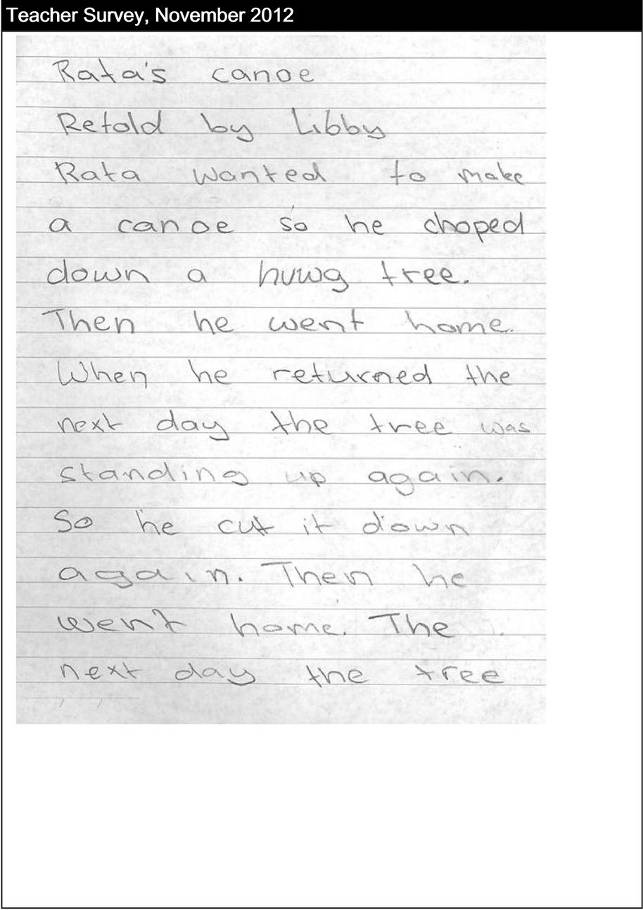 Teacher Survey, November 2012
Rata's canoe
Retold by Libby
Rata wanted to make
a canoe so he choped
down a huwg tree.
Then he went home.
When he returned the
next day the tree was
standing up again.
So he cut it down
again. Then he
went home. The
next day the tree